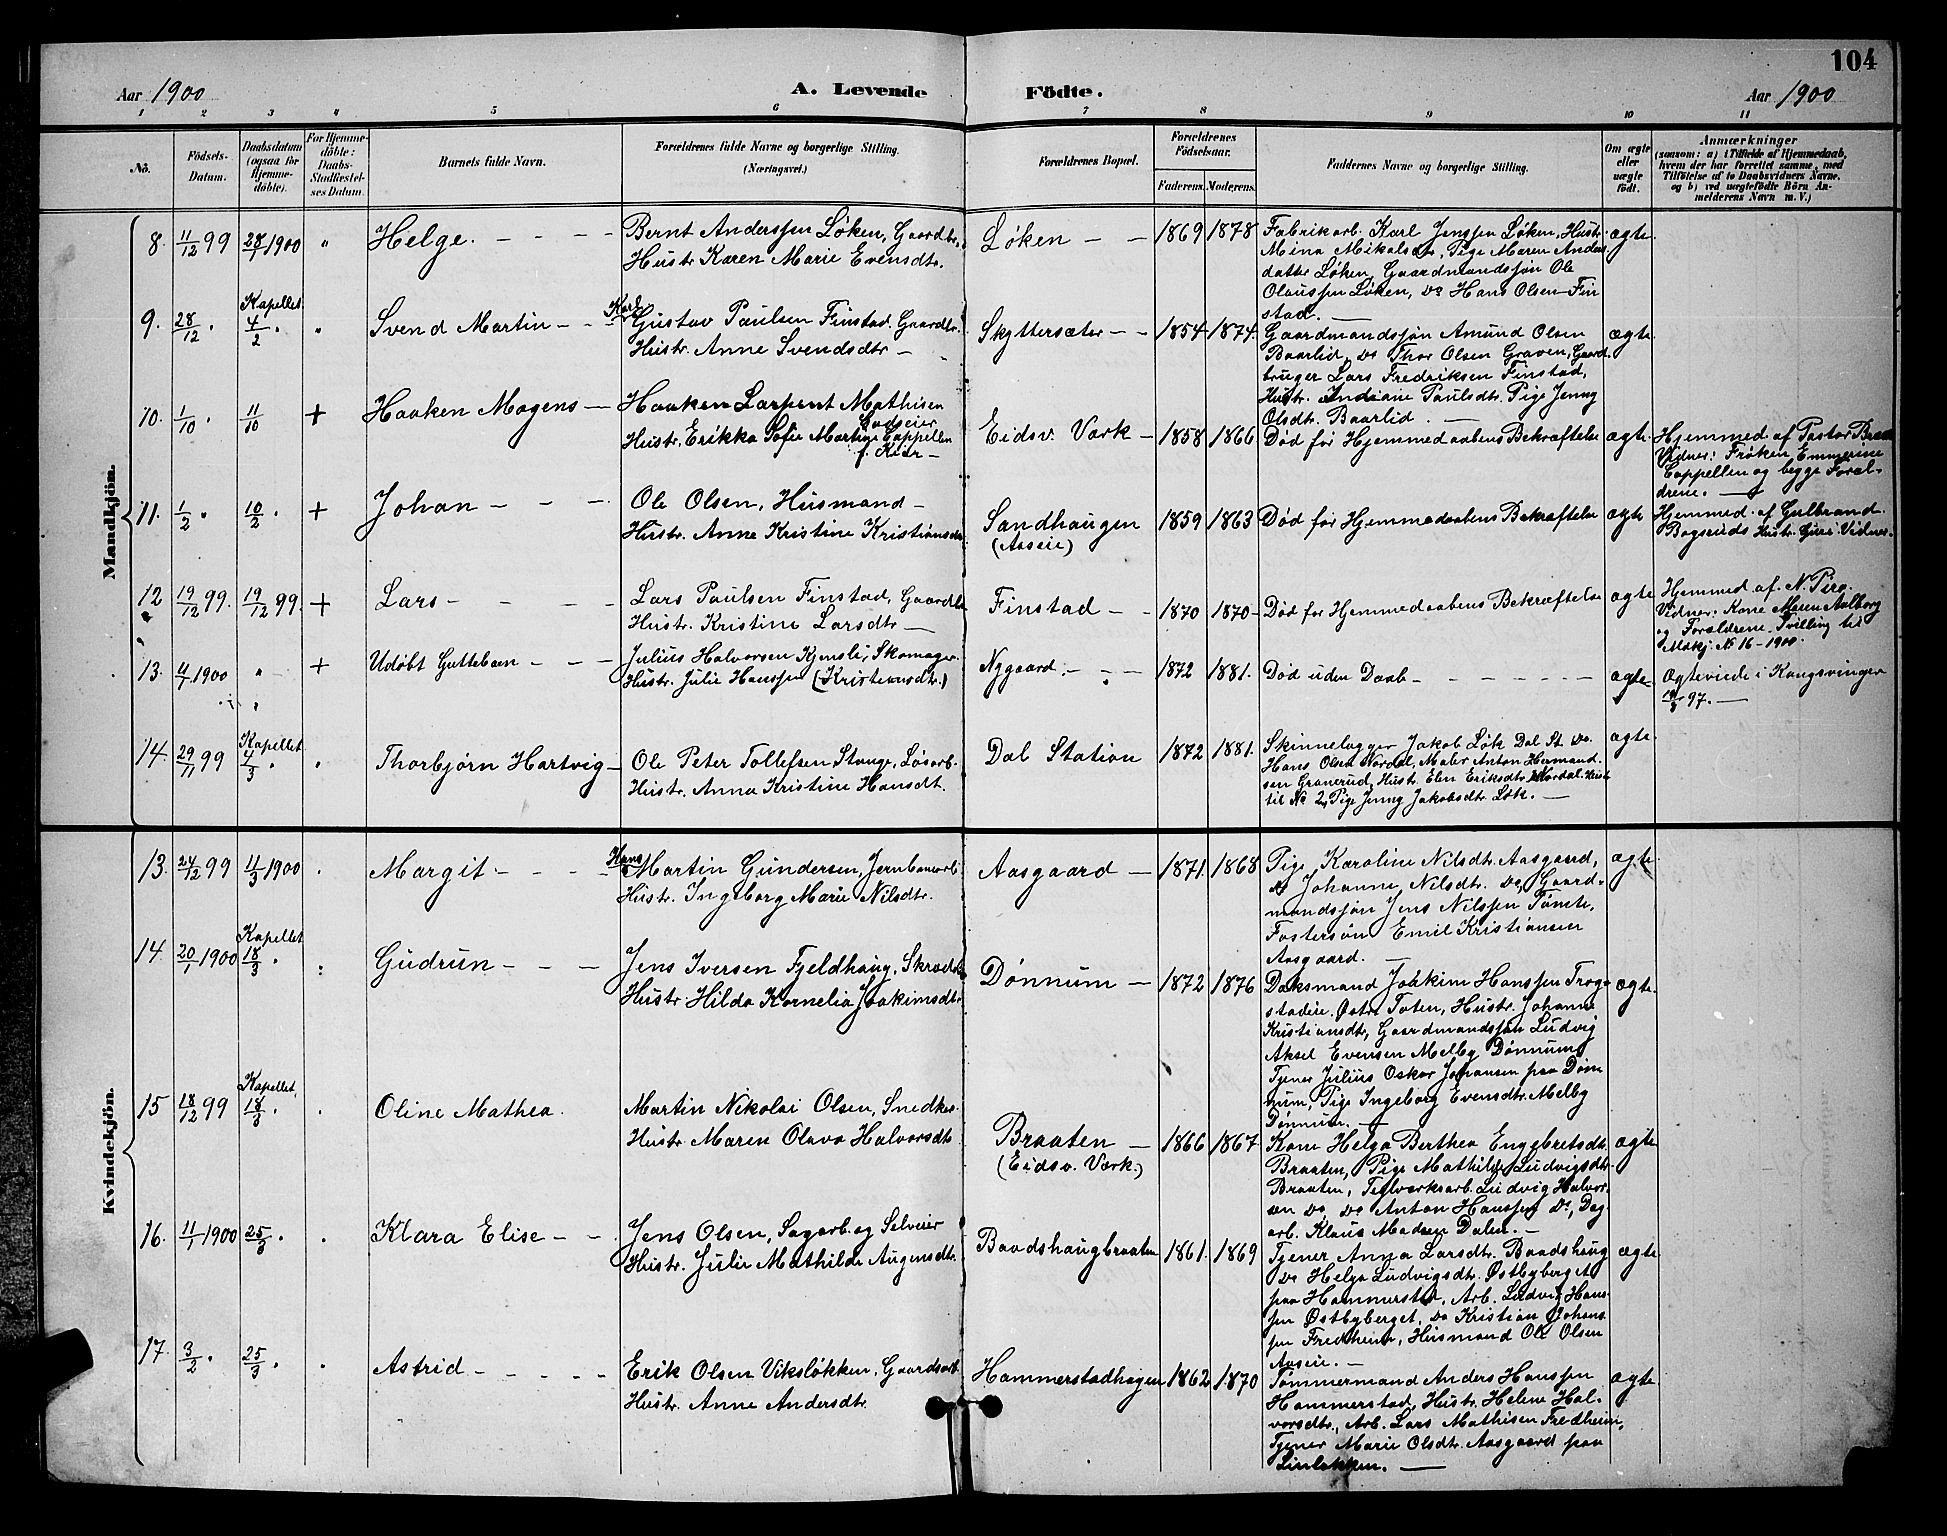 104
Aar 1900
A. Levende Födte.
Aar 1900
1 2 3 4 5 6 7 8 9 10 11
No.
Födsels-Datum.
Daabsdatum (ogsaa for Hjemme-döbte).
For Hjemme-döbte: Daabs-Stadfæstel-ses Datum.
Barnets fulde Navn.
Forældrenes fulde Navne og borgerlige Stilling.
(Næringsvei.)
Forældrenes Bopæl.
Forældrenes Födselsaar.
Faderens. Moderens.
Faddernes Navne og borgerlige Stilling.
Om ægte eller uægte födt.
Anmærkninger
(saasom: a) i Tilfælde af Hjemmedaab,
hvem der har forrettet samme, med
Tilföielse af to Daabsvidners Navne,
og b) ved uægtefödte Börn An-
melderens Navn m. V.)
Mandkjön.
8. 11/12 99 28/1 1900 " Helge. - - - -
Bernt Anderssen Løken, Gaardbr.
Hustr. Karen Marie Evensdtr.
Løken - - 1869 1878
Fabrikarb. Karl Jenssen Løken, Hustr.
Mina Mikalsdtr, Pige Maren Anders
datter Løken, Gaardmandssøn Ole
Olaussen Løken, Do Hans Olsen Fin
stad. -
ægte.
9. 28/12 . Kapellet 4/2 . " Svend Martin - -
Karl
Gustav Paulsen Finstad. Gaardbr.
Hustr. Anne Svendsdtr -
Skyttersæter - - 1854 1874.
Gaardmandssøn Amund Olsen
Baarlid, Do Thor Olsen Graven, Gaard
bruger Lars Fredriksen Finstad,
Hustr. Indiane Paulsdtr. Pige Jenny
Olsdtr. Baarlid . -
ægte
10. 1/10 . 11/10 + Haaken Magens -
Haaken Larpent Mathisen
Godseier
Hustr. Erikka Sofie Martine Cappellen
f. Kiær -
Eidsv. Værk - 1858 1866
Død før Hjemmedaabens Bekræftelse
ægte.
Hjemmed. af Pastor
Vidner: Frøken Emmerine
Cappellen og begge Foræl-
drene. -
11. 1/2 . 10/2 . + Johan - - -
Ole Olsen, Husmand -
Hustr. Anne Kristine Kristiansdtr
Sandhaugen
(Aaseie)
1859 1863
Død før Hjemmedaabens Bekræftelse
ægte
Hjemmed. af Gulbrand
Bogsruds Hustr. Vidner.
12 19/12 99. 19/12 99. + Lars - - - -
Lars Paulsen Finstad, Gaardbr
Hustr. Kristine Larsdtr -
Finstad - - 1870 1870 -
Død før Hjemmedaabens Bekræftelse
ægte
Hjemmed. af. N.
Vidner: Kone Maren Aalborg
og Forældrene. Tvilling til
Mdkj. No 16 - 1900.
13. 4/1 1900 " - + Udøbt Guttebarn - - -
Julius Halvorsen Kjensli, Skomager.
Hustr. Julie Hanssen (Kristiansdtr.)
Nygaard. - - 1872 1881.
Død uden Daab - - - - - - -
ægte
Ægteviede i Kongsvinger
97. -
14. 29/11 99 Kapellet 4/3 . " Thorbjørn Hartvig -
Ole Peter Tollefsen Stange, Løsarb.
Hustr. Anna Kristine Hansdt.
Dal Station 1872 1881.
Skinnelægger Jakob Løk Dal St. Do
Hans Olsen Nordal, Maler Anton Hermand
sen Granerud, Hustr. Elen Eriksdtr Nordal. Hustr
til No 2, Pige Jenny Jakobsdtr. Løk. -
ægte
Kvindekjön.
13. 24/12 99 11/3 1900 . Margit - - - -
Hans
Martin Gundersen, Jernbanearb.
Hustr. Ingeborg Marie Nilsdtr.
Aasgaard - 1871. 1868
Pige Karoline Nilsdtr. Aasgaard,
Do Johanne Nilsdtr. Do, Gaard-
mandssøn Jens Nilssen Tømte,
Fostersøn Emil Kristiansen
Aasgaard. -
ægte.
14. 20/1 1900 Kapellet 18/3 . : Gudrun - - -
Jens Iversen Fjeldhaug, Skrædder
Hustr. Hilda Kornelia Joakimsdtr.
Dønnum - 1872 1876
Daksmand Joakim Hanssen Trog
stadeie. Østre Toten, Hustr. Johanne
Kristiansdtr, Gaardmandssøn Ludvig
Aksel Evensen Melby Dønnum,
Tjener Julius Oskar Johansen paa Døn
num, Pige Ingeborg Evensdtr. Melby
Dønnum. -
ægte.
15 18/12 99 Kapellet. 18/3 . . Oline Mathea.
Martin Nikolai Olsen, Snedker.
Hustr Maren Olava Halvorsdtr.
Braaten -
(Eidsv. Værk.)
1866 1867
Kone Helga Berthea Engebretsdtr
Braaten, Pige Mathilde Ludvigsdtr.
Braaten, Teglværksarb. Ludvig Halvor
sen Do, Do Anton Hanssen Do, Dag
arb. Klaus Madsen Dalen. -
ægte
16. 11/1 1900 25/3 . . Klara Elise - -
Jens Olsen, Sagarb. og Selveier
Hustr. Julie Mathilde Augensdtr.
Baadshaugbraaten 1861. 1869
Tjener Anna Larsdtr. Baadshaug
Do Helga Ludvigsdtr. Østbyberget
paa Hammerstad, Arb. Ludvig Hans-
sen Østbyberget, Do Kristian Johans
sen Fredheim, Husmand Ole Olsen
Aaseie. -
ægte
17. 3/2 . 25/3 . . Astrid - - - - -
Erik Olsen Vikslökken, Gaardsarb.
Hustr. Anne Andersdtr.
Hammerstadhagen 1862 1870
Tømmermand Anders Hanssen
Hammerstad, Hustr. Helene Hal-
vorsdtr., Arb. Lars Mathisen Fredheim,
Tjener Marie Olsdtr. Aasgaard paa
Linløkken. -
ægte